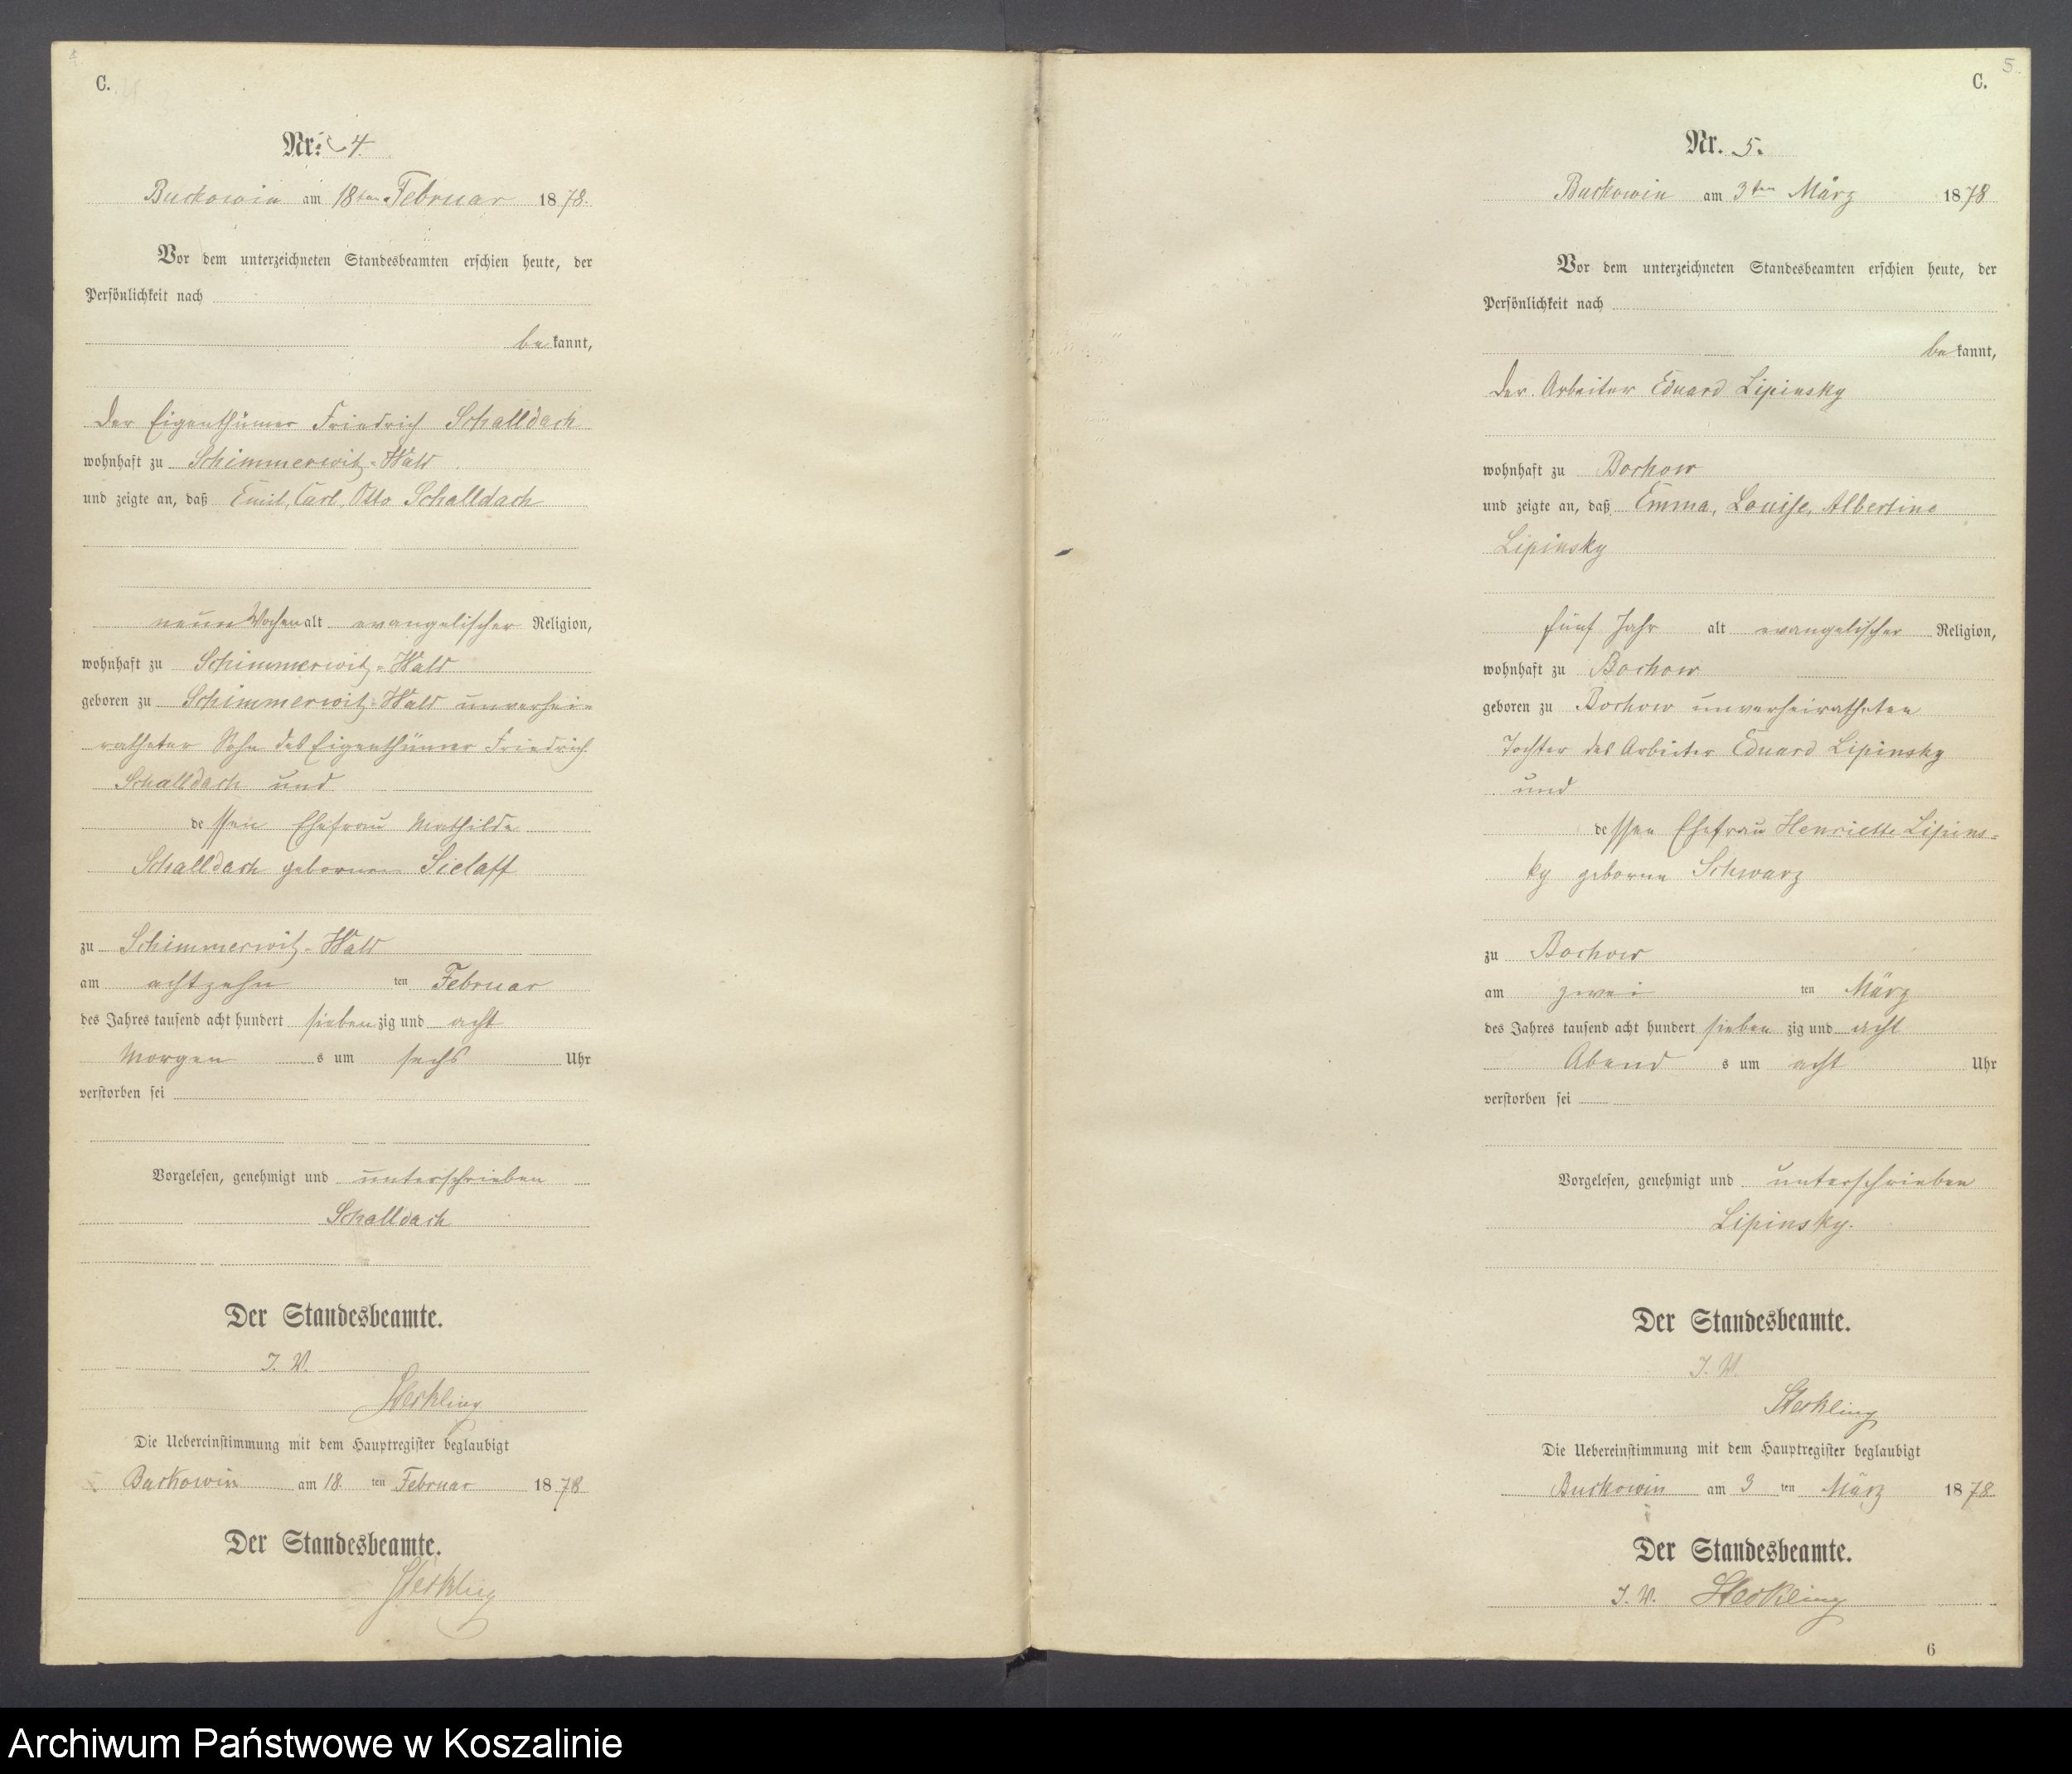 4
C.
Nr. 4.
Buckowin am 18ten Februar 1878.
Vor dem unterzeichneten Standesbeamten erschien heute, der
Persönlichkeit nach
bekannt,
der Eigenthümer Friedrich Schalldach
wohnhaft zu Schimmerwitz-Wald
und zeigte an, daß Emil, Carl, Otto Schalldach
neun Wochen alt evangelischer Religion,
wohnhaft zu Schimmerwitz-Wald
geboren zu Schimmerwitz-Wald unverhei-
ratheter Sohn des Eigenthümer Friedrich
Schalldach und
dessen Ehefrau Mathilde
Schalldach geborenen Sielaff
zu Schimmerwitz-Wald
am achtzehn ten Februar
des Jahres tausend acht hundert siebenzig und acht
Morgens um sechs Uhr
verstorben sei
Vorgelesen, genehmigt und unterschrieben
Schalldach
Der Standesbeamte.
I. V.
Die Uebereinstimmung mit dem Hauptregister beglaubigt
Buckowin am 18. ten Februar 1878
Der Standesbeamte.
5.
C.
Nr. 5.
Buckowin am 3ten März 1878
Vor dem unterzeichneten Standesbeamten erschien heute, der
Persönlichkeit nach
bekannt,
der Arbeiter Eduard Lipinsky
wohnhaft zu Bochow
und zeigte an, daß Emma, Louise, Albertine
Lipinsky
fünf Jahr alt evangelischer Religion,
wohnhaft zu Bochow
geboren zu Bochow unverheiratheten
Tochter des Arbeiter Eduard Lipinsky
und
dessen Ehefrau Henriette Lipins-
ky geborne Schwarz
zu Bochow
am zwei ten März
des Jahres tausend acht hundert sieben zig und acht
Abends um acht Uhr
verstorben sei
Vorgelesen, genehmigt und unterschrieben
Lipinsky.
Der Standesbeamte.
I. V.
Die Uebereinstimmung mit dem Hauptregister beglaubigt
Buckowin am 3 ten März 1878
Der Standesbeamte.
I. V.
6
Archiwum Państwowe w Koszalinie